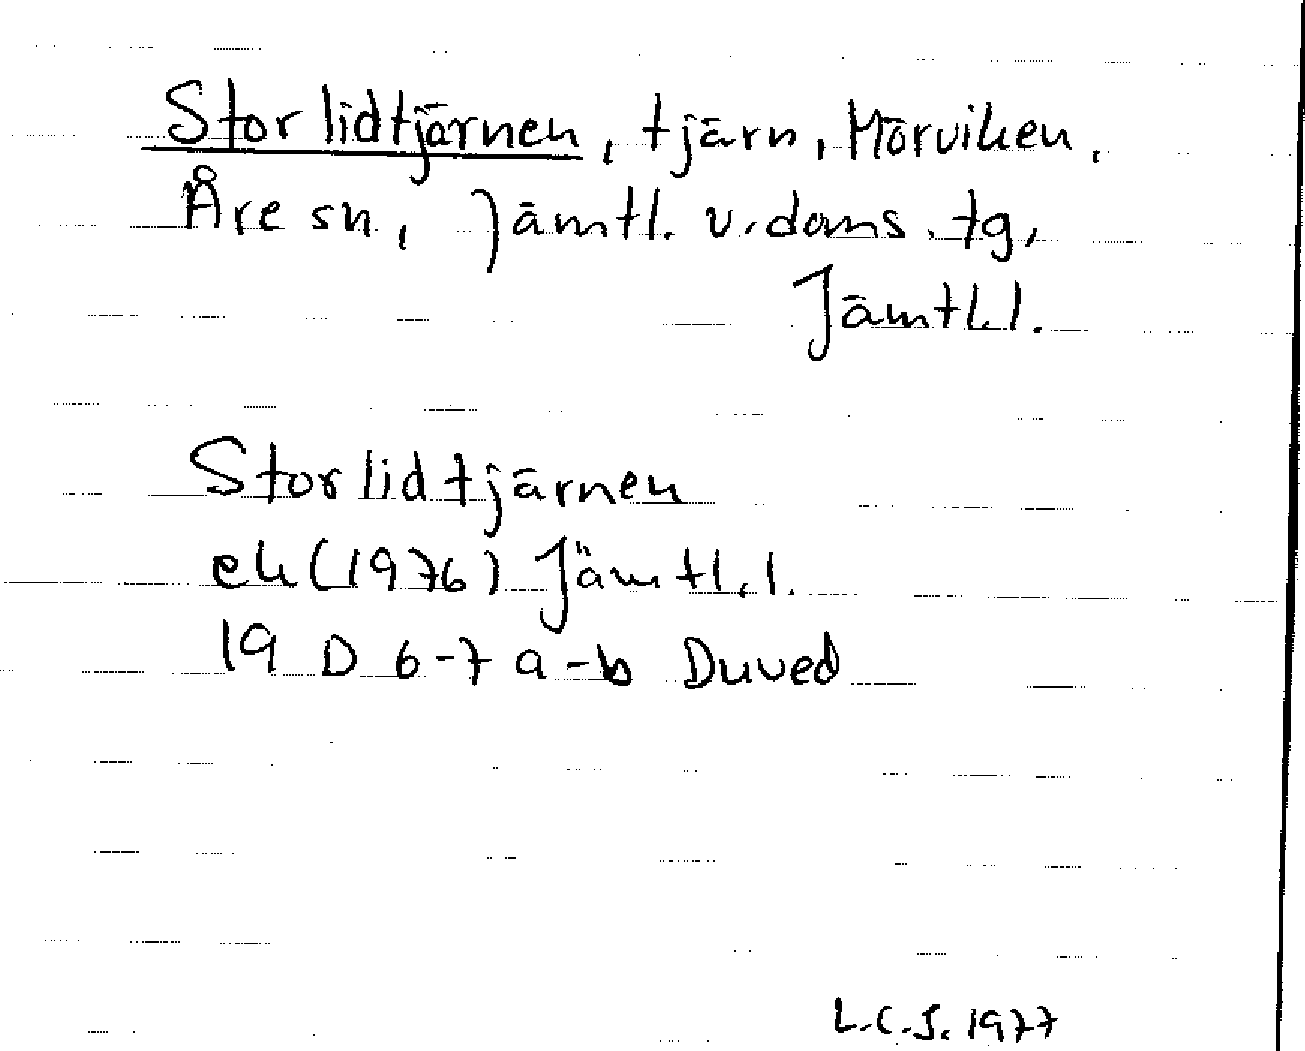 Storlidtjärnen, tjärn, Mörviken,
Åre sn, Jämtl. v. doms. tg,
Jämtl. l.
Storlidtjärnen
ek (1976) Jämtl. l.
19 D 6-7 a-b Duved
L.C.S. 1977